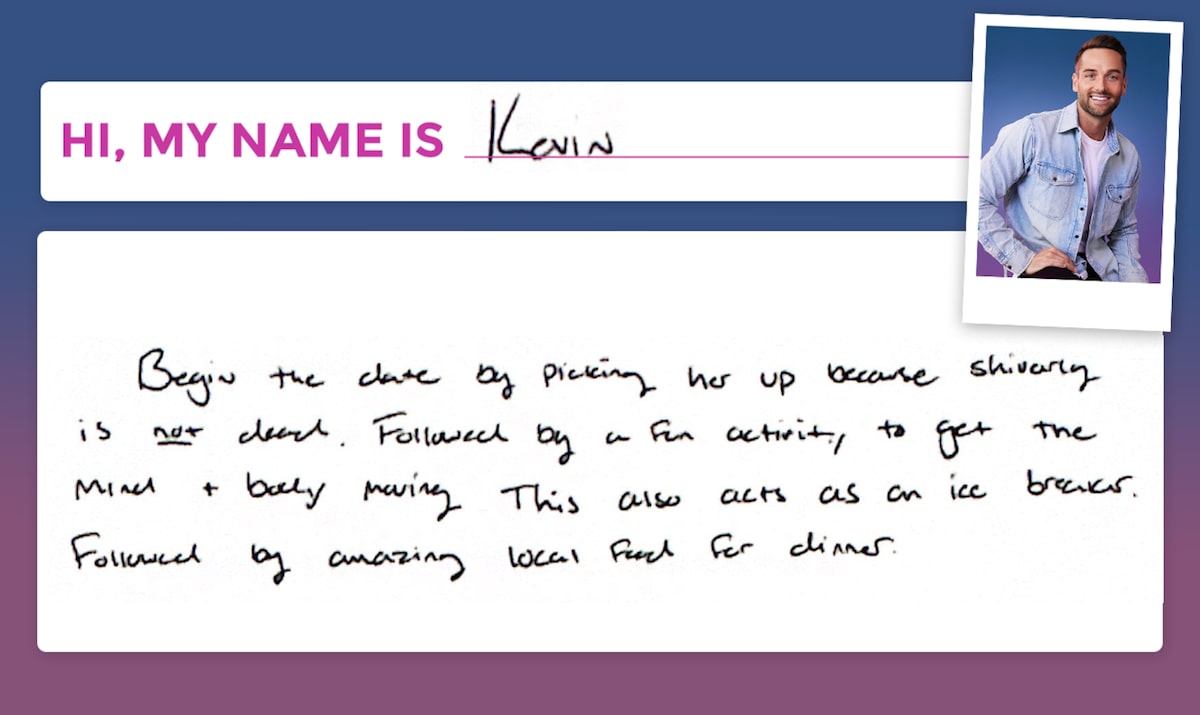 HI, MY NAME IS Kevin
Begin the date by picking her up because shivarly
is not dead. Followed by a fun activity to get the
Mind + body moving This also acts as an ice breaker.
Followed by amazing local food for dinner.